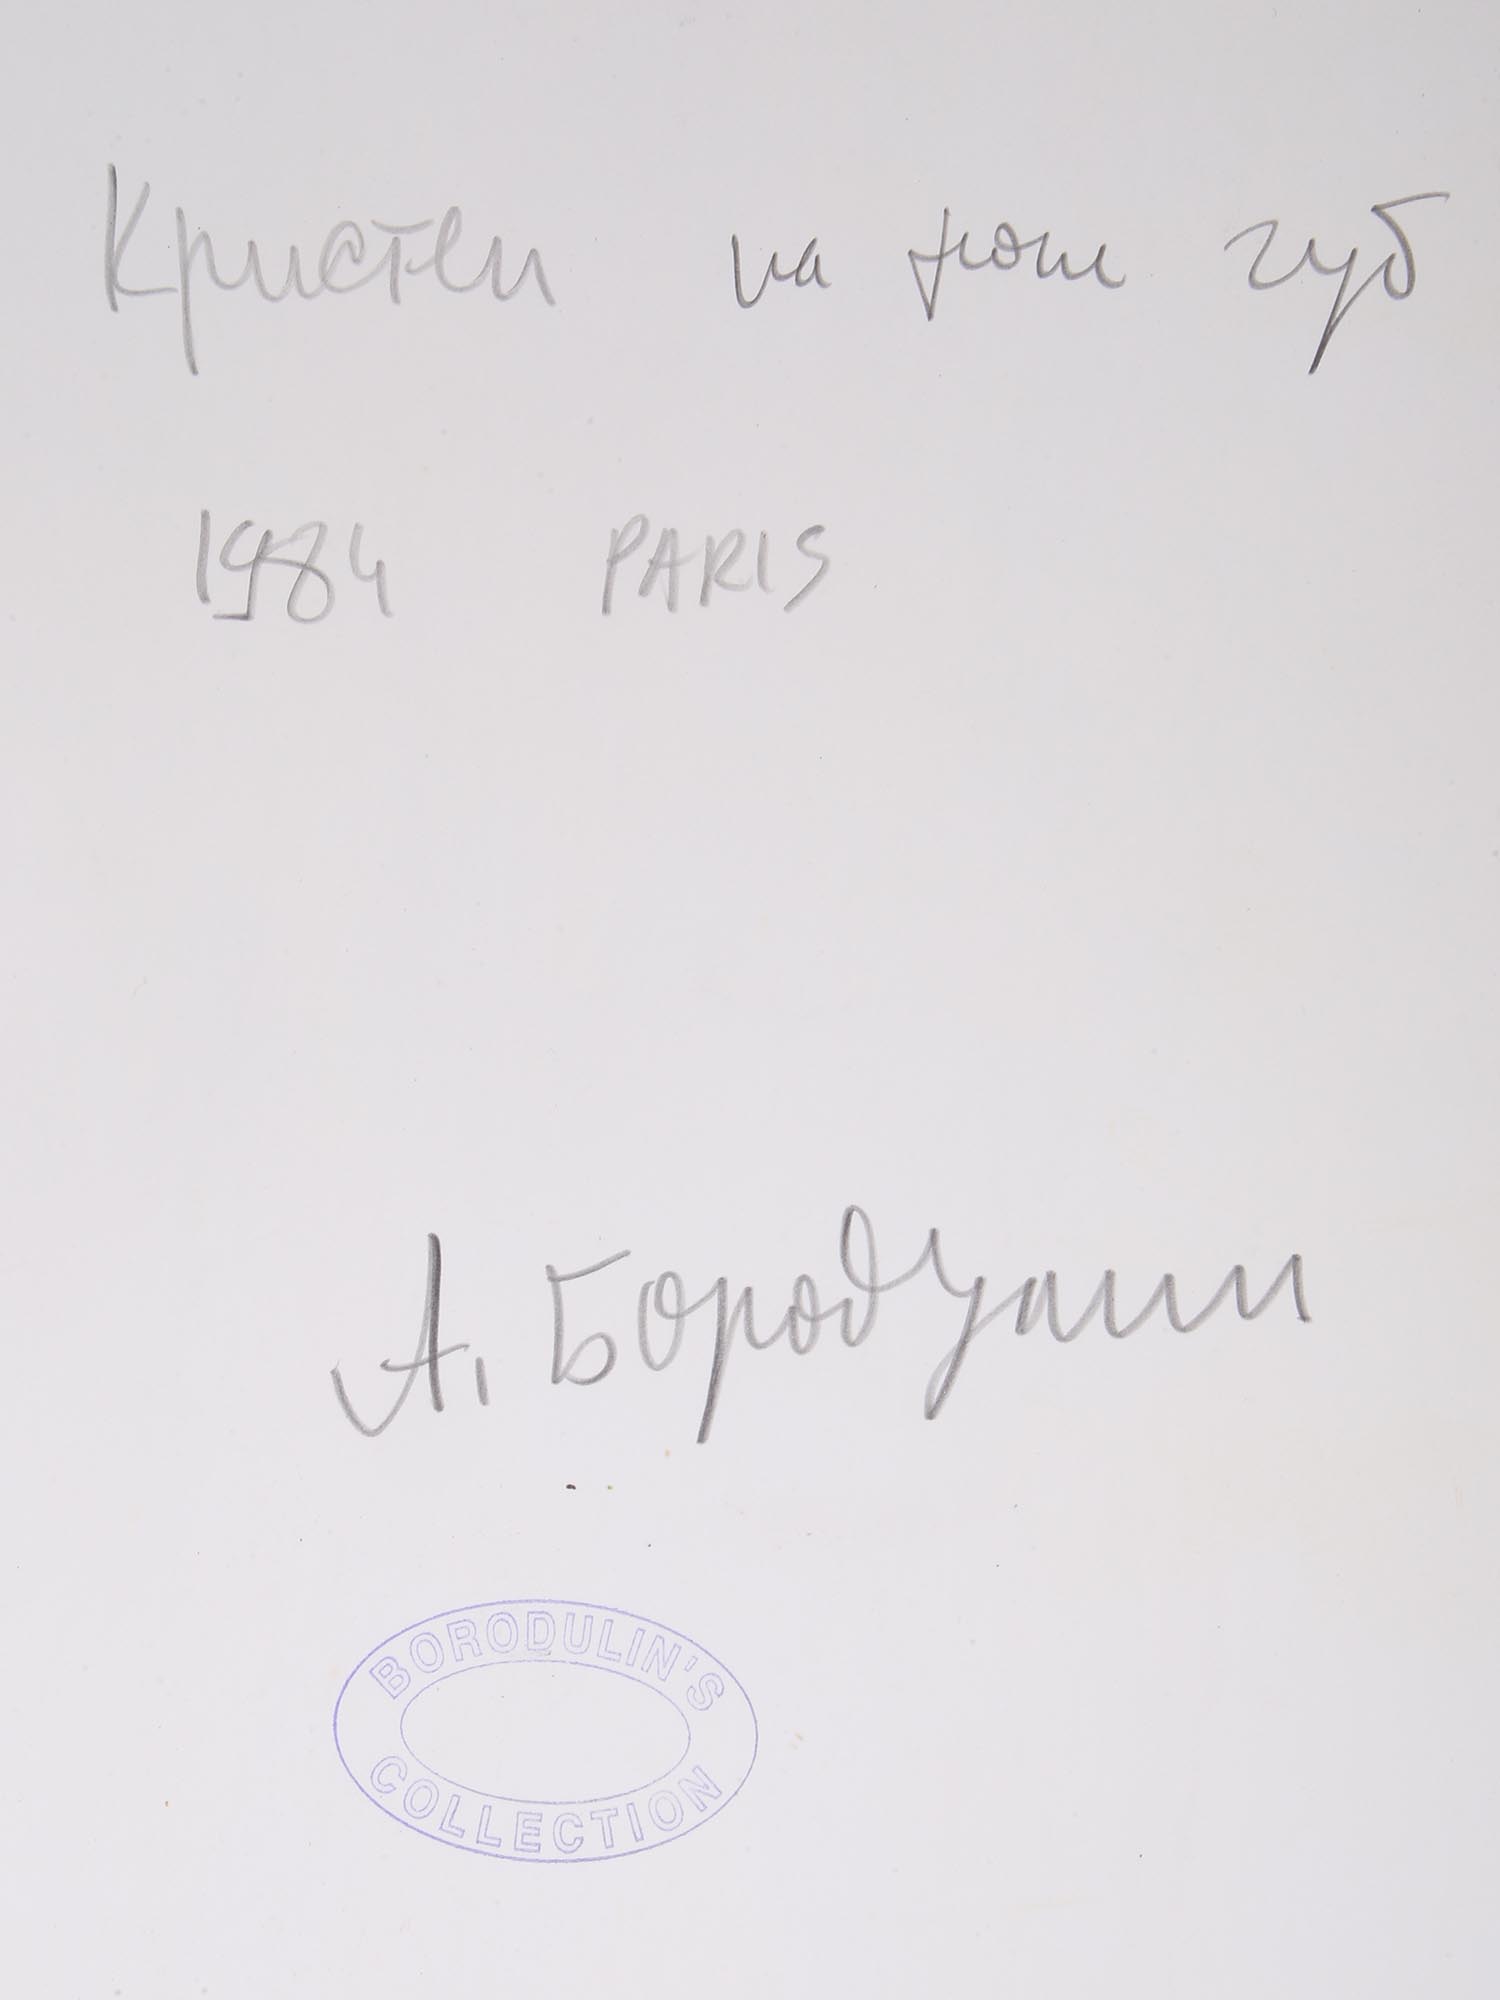 Кристен на фоне губ
1984 PARIS
А. Бородулин
BORODULIN'S
COLLECTION